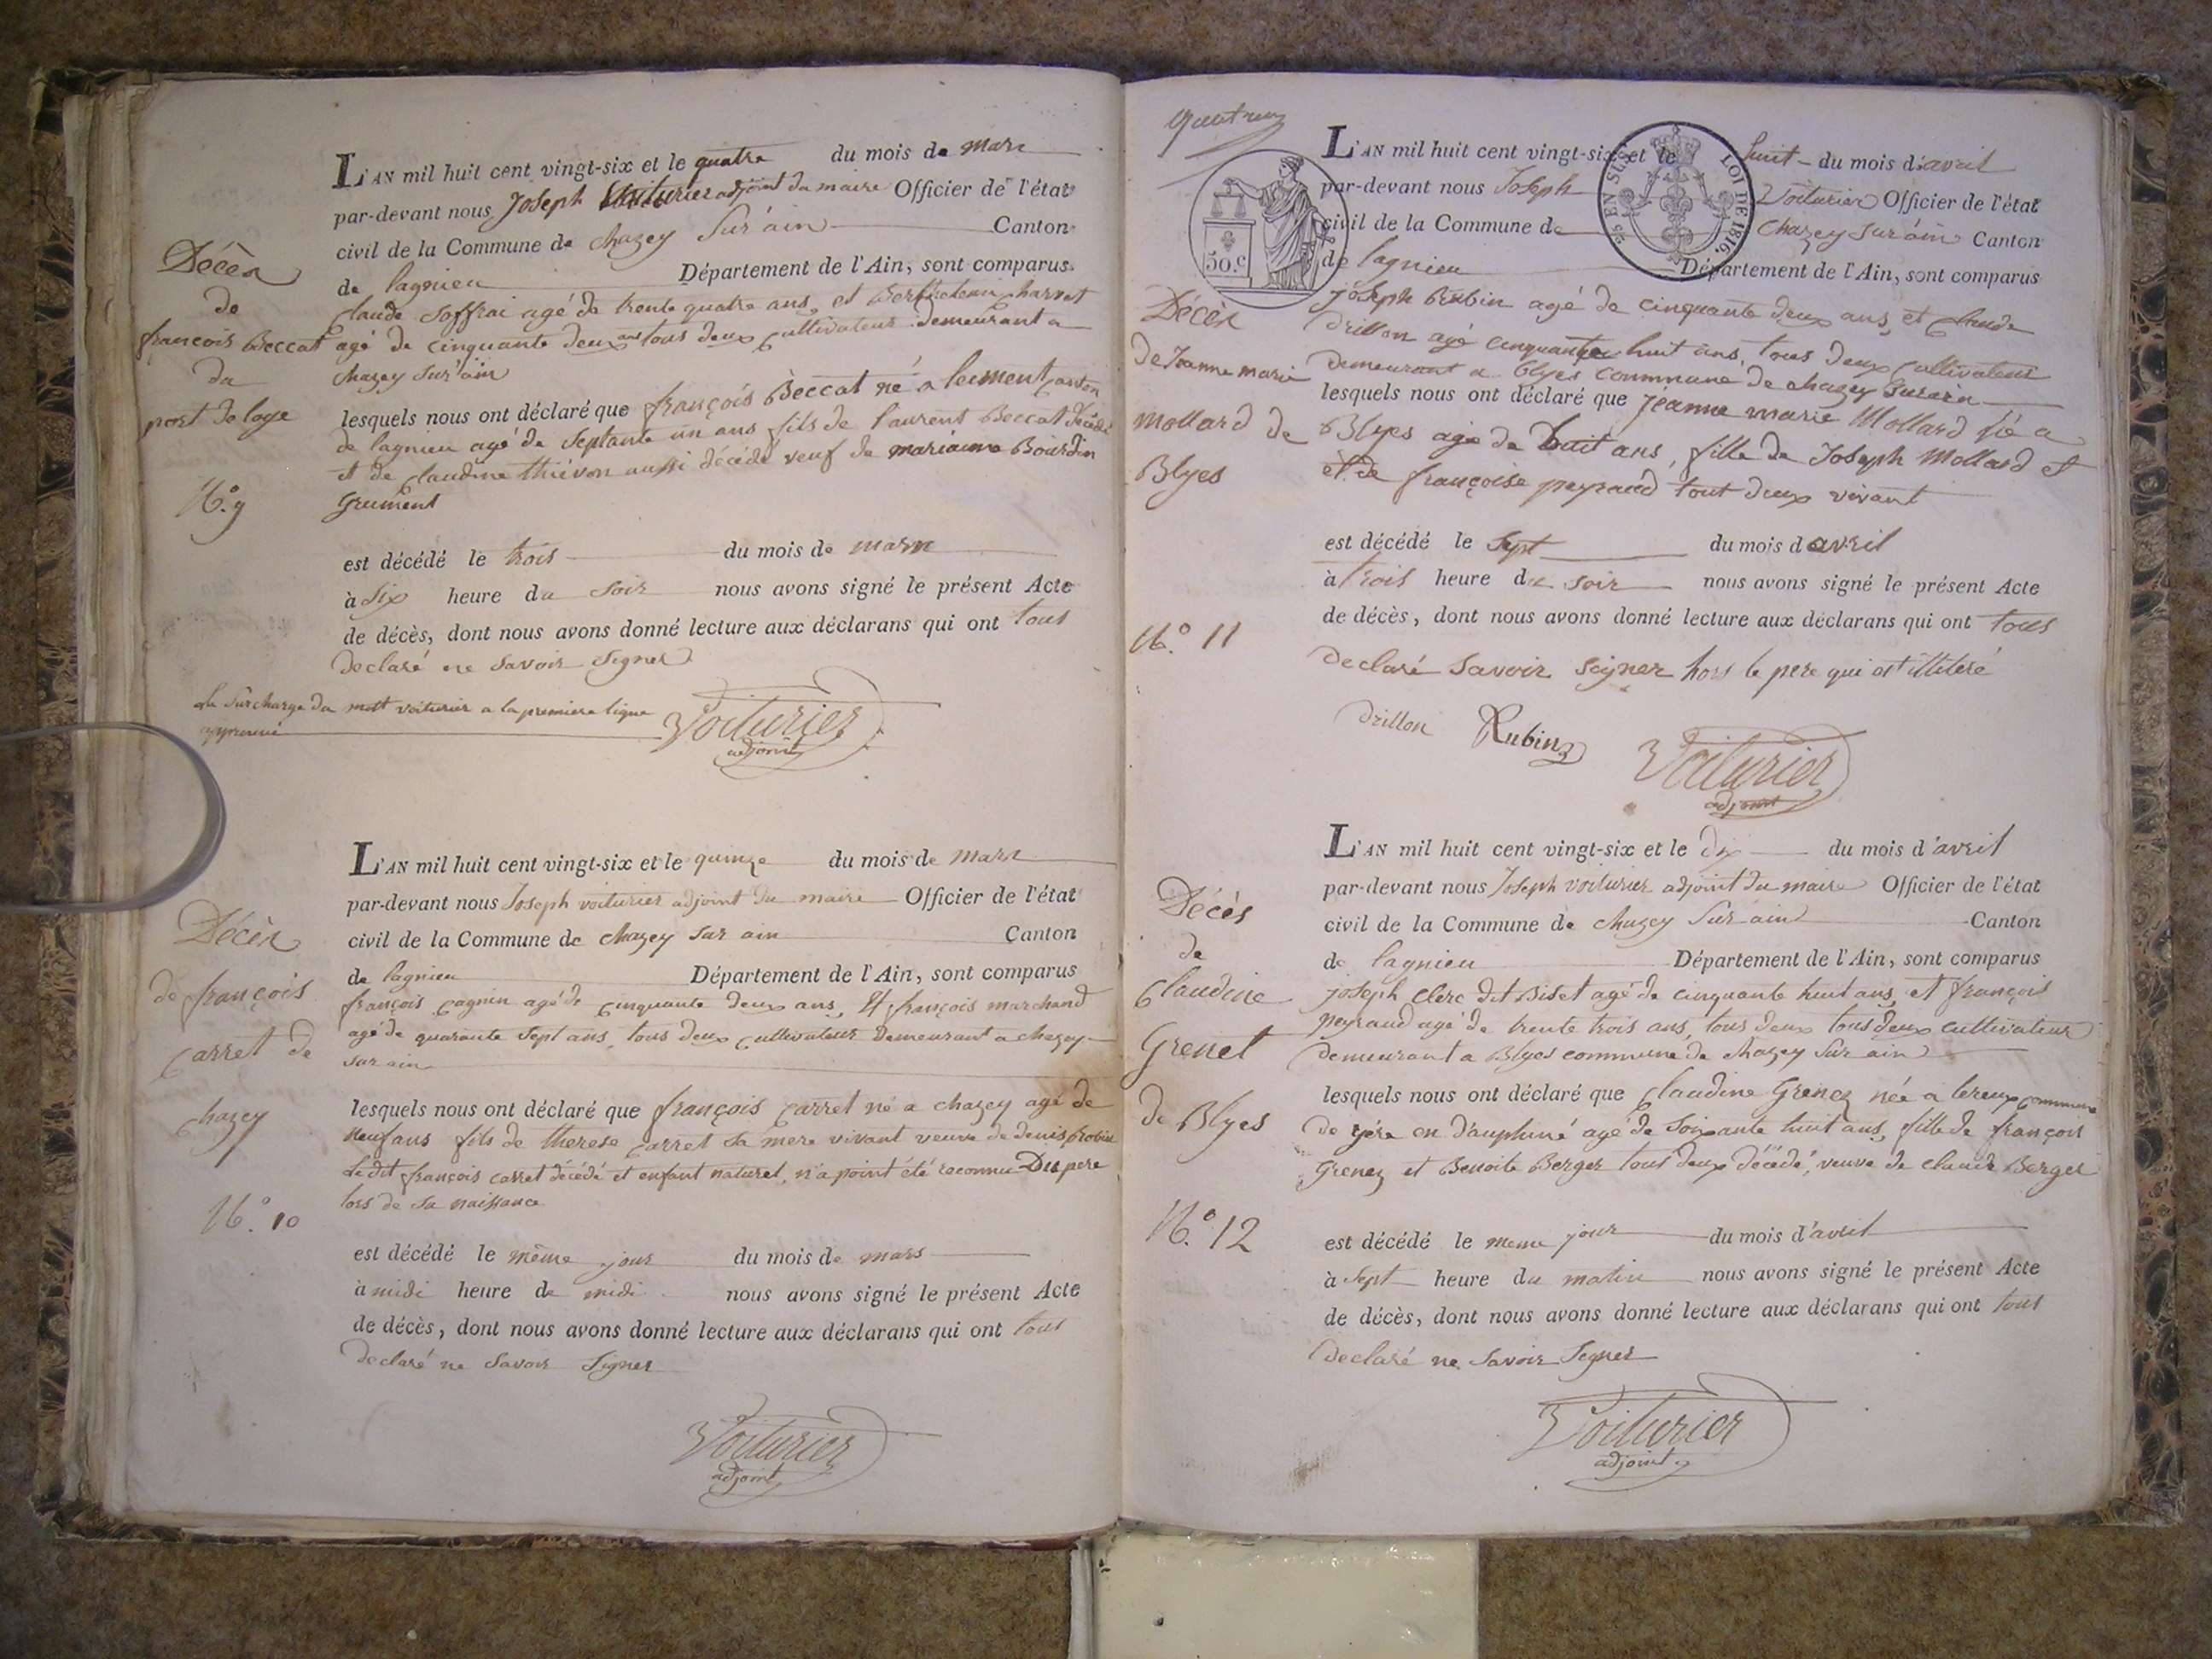 L'AN mil huit cent vingt-six et le quatre du mois de mars
par-devant nous Joseph voiturier adjoint du maire Officier de l'état
civil de la Commune de chazey sur ain Canton
de lagnieu Département de l'Ain, sont comparus
claude Joffrai agé de trente quatre ans, et charvet
agé de cinquante deux ans tous deux cultivateur demeurant a
chazey sur ain
lesquels nous ont déclaré que françois Beccat né a leiment canton
de lagnieu agé de septante un ans fils de laurent Beccat décédé
et de claudine thiévon aussi décédé veuf de marianne Bourdin
Grument
est décédé le trois du mois de mars
à six heure du soir nous avons signé le présent Acte
de décès, dont nous avons donné lecture aux déclarans qui ont tous
declaré ne savoir signer
la surcharge du mott voiturier a la premiere ligne
approuvé
Voiturier
adjoint
Décès
de
françois Beccat
du
port de loye
N.º 9
L'AN mil huit cent vingt-six et le quinze du mois de mars
par-devant nous Joseph voiturier adjoint du maire Officier de l'état
civil de la Commune de chazey sur ain Canton
de lagnieu Département de l'Ain, sont comparus
françois cagnin agé de cinquante deux ans, et françois marchand
agé de quarante sept ans, tous deux cultivateur demeurant a chazey
sur ain
lesquels nous ont déclaré que françois carret né a chazey agé de
neuf ans fils de therese carret sa mere vivant veuve de denis
Le dit françois carret décédé et enfant naturel, n'a point été reconnu Du pere
lors de sa naissance
est décédé le même jour du mois de mars
à midi heure de midi nous avons signé le présent Acte
de décès, dont nous avons donné lecture aux déclarans qui ont tous
declaré ne savoir signer
Voiturier
adjoint
Décès
de françois
carret de
chazey
N.º 10
50.c
EN SUS
LOI DE 1816.
L'AN mil huit cent vingt-six et le huit du mois d'avril
par-devant nous Joseph Voiturier Officier de l'état
civil de la Commune de chazey sur ain Canton
de lagnieu Département de l'Ain, sont comparus
joseph Rubin agé de cinquante deux ans, et claude
drillon agé cinquante huit ans, tous deux cultivateur
demeurant a blyes commune de chazey sur ain
lesquels nous ont déclaré que jéanne marie Mollard né a
Blyes agé de huit ans, fille de Joseph Mollard et
et de françoise peyraud tout deux vivant
est décédé le sept du mois d avril
à trois heure du soir nous avons signé le présent Acte
de décès, dont nous avons donné lecture aux déclarans qui ont tous
declaré savoir signer hors le pere qui est illiteré
drillon Rubin
Voiturier
adjoint
Décès
de Jeanne marie
mollard de
Blyes
N.º 11
L'AN mil huit cent vingt-six et le dix du mois d'avril
par-devant nous Joseph voiturier adjoint du maire Officier de l'état
civil de la Commune de chazey sur ain Canton
de lagnieu Département de l'Ain, sont comparus
joseph clerc dit Biset agé de cinquante huit ans, et françois
peyraud agé de trente trois ans, tous deux tous deux cultivateur
demeurant a Blyes commune de chazey sur ain
lesquels nous ont déclaré que claudine Grenez née a commune
de en dauphiné agé de soixante huit ans, fille de françois
Grenez et Benoite Berger tous deux décédé, veuve de claude Berger
est décédé le meme jour du mois d'avril
à sept heure du matin nous avons signé le présent Acte
de décès, dont nous avons donné lecture aux déclarans qui ont tous
declaré ne savoir signer
Voiturier
adjoint
Décès
de
claudine
Grenet
de Blyes
N.º 12